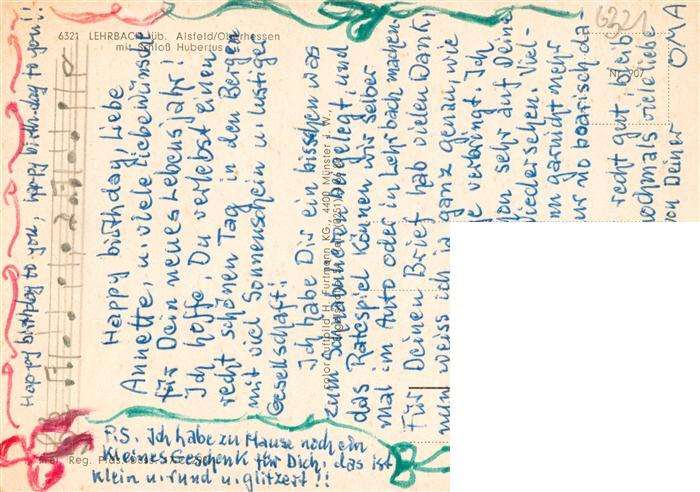 6321 LEHRBACH üb. Alsfeld/Oberhessen
mit Schloß Hubertus
6321
Nr. 907
Happy birthday to you, happy birthday to you!!
Happy birthday, liebe
Annette, u. viele liebe Wünsche
für Dein neues Lebensjahr!
Ich hoffe, Du verlebst einen
recht schönen Tag in den Bergen
mit viel Sonnenschein u. lustiger
Gesellschaft!
Ich habe Dir ein bisschen was
zum Schnabulieren beigelegt, und
das Ratespiel können wir selber
mal im Auto oder in Lehrbach machen.
Für Deinen Brief hab vielen Dank,
nun weiss ich ja ganz genau, wie
verbringt. Ich
sehr auf Deine
Wiedersehen. Viel-
garnicht mehr
nur no boarisch da-
recht gut, bleib
nochmals viele liebe
von Deiner
OMA
P.S. Ich habe zu Hause noch ein
kleines Geschenk für Dich, das ist
klein u. rund u. glitzert!!